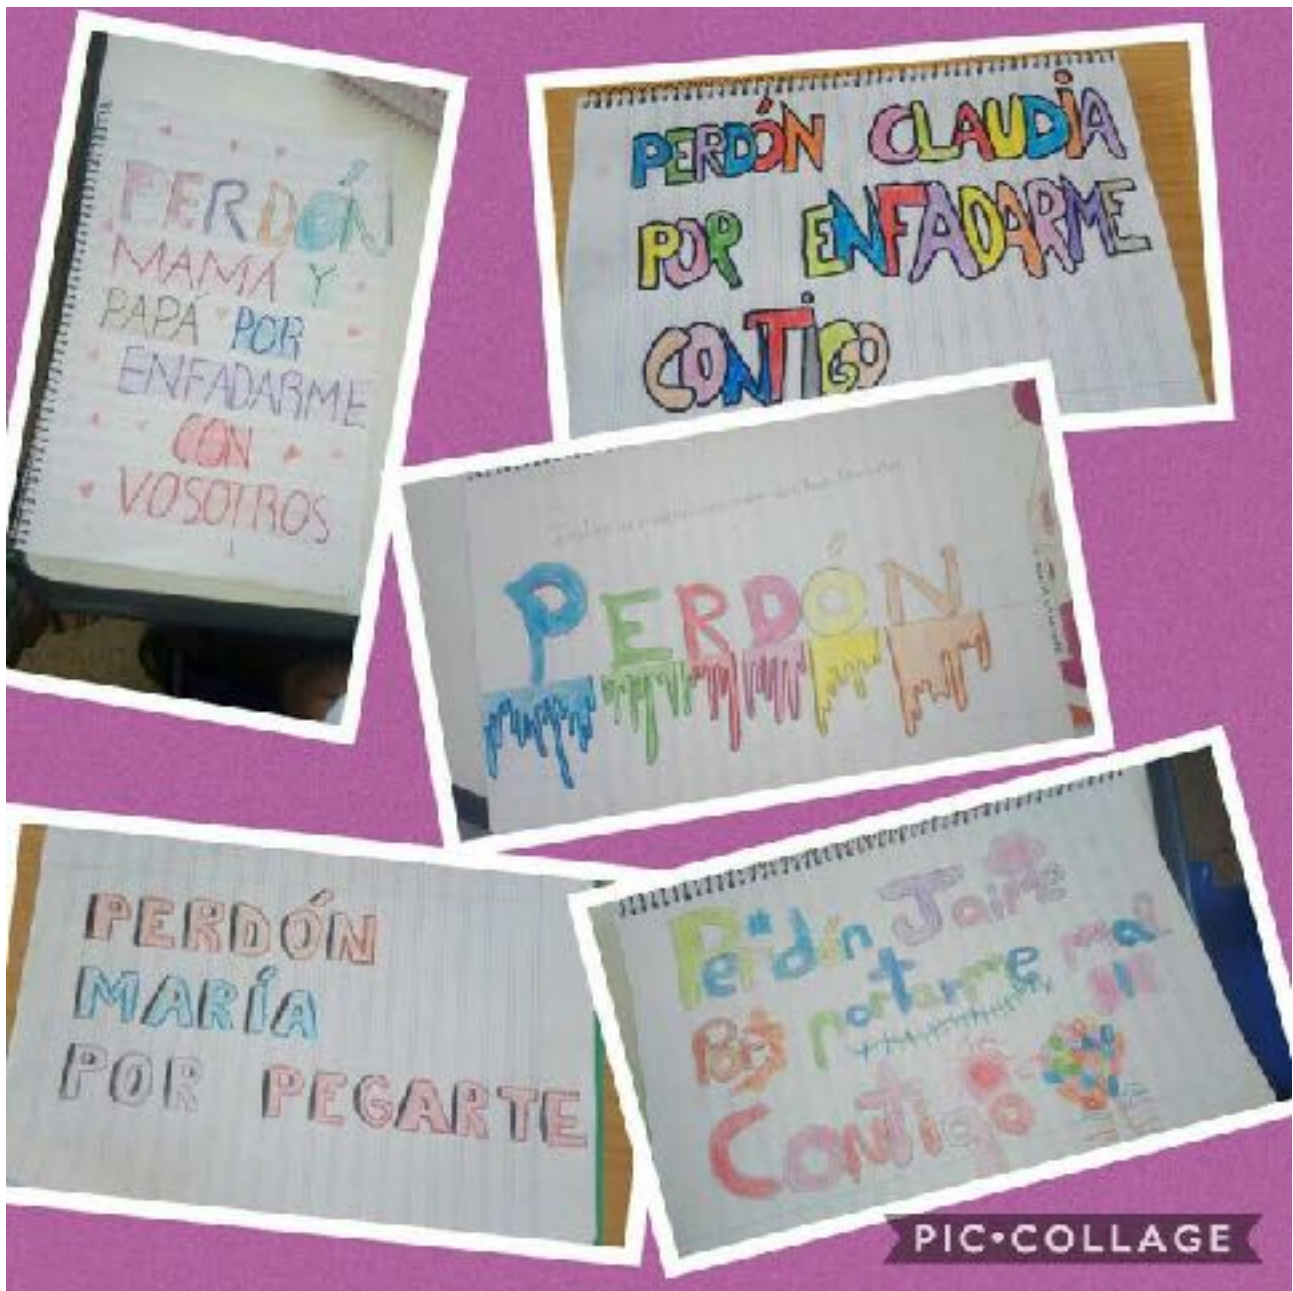 PERDÓN
MAMÁ Y
PAPÁ POR
ENFADARME
CON
VOSOTROS
PERDÓN CLAUDIA
POR ENFADARME
CONTIGO
PERDÓN
PERDÓN
MARÍA
POR PEGARTE
Perdón Jaime
Por portarme mal
Contigo
PIC•COLLAGE